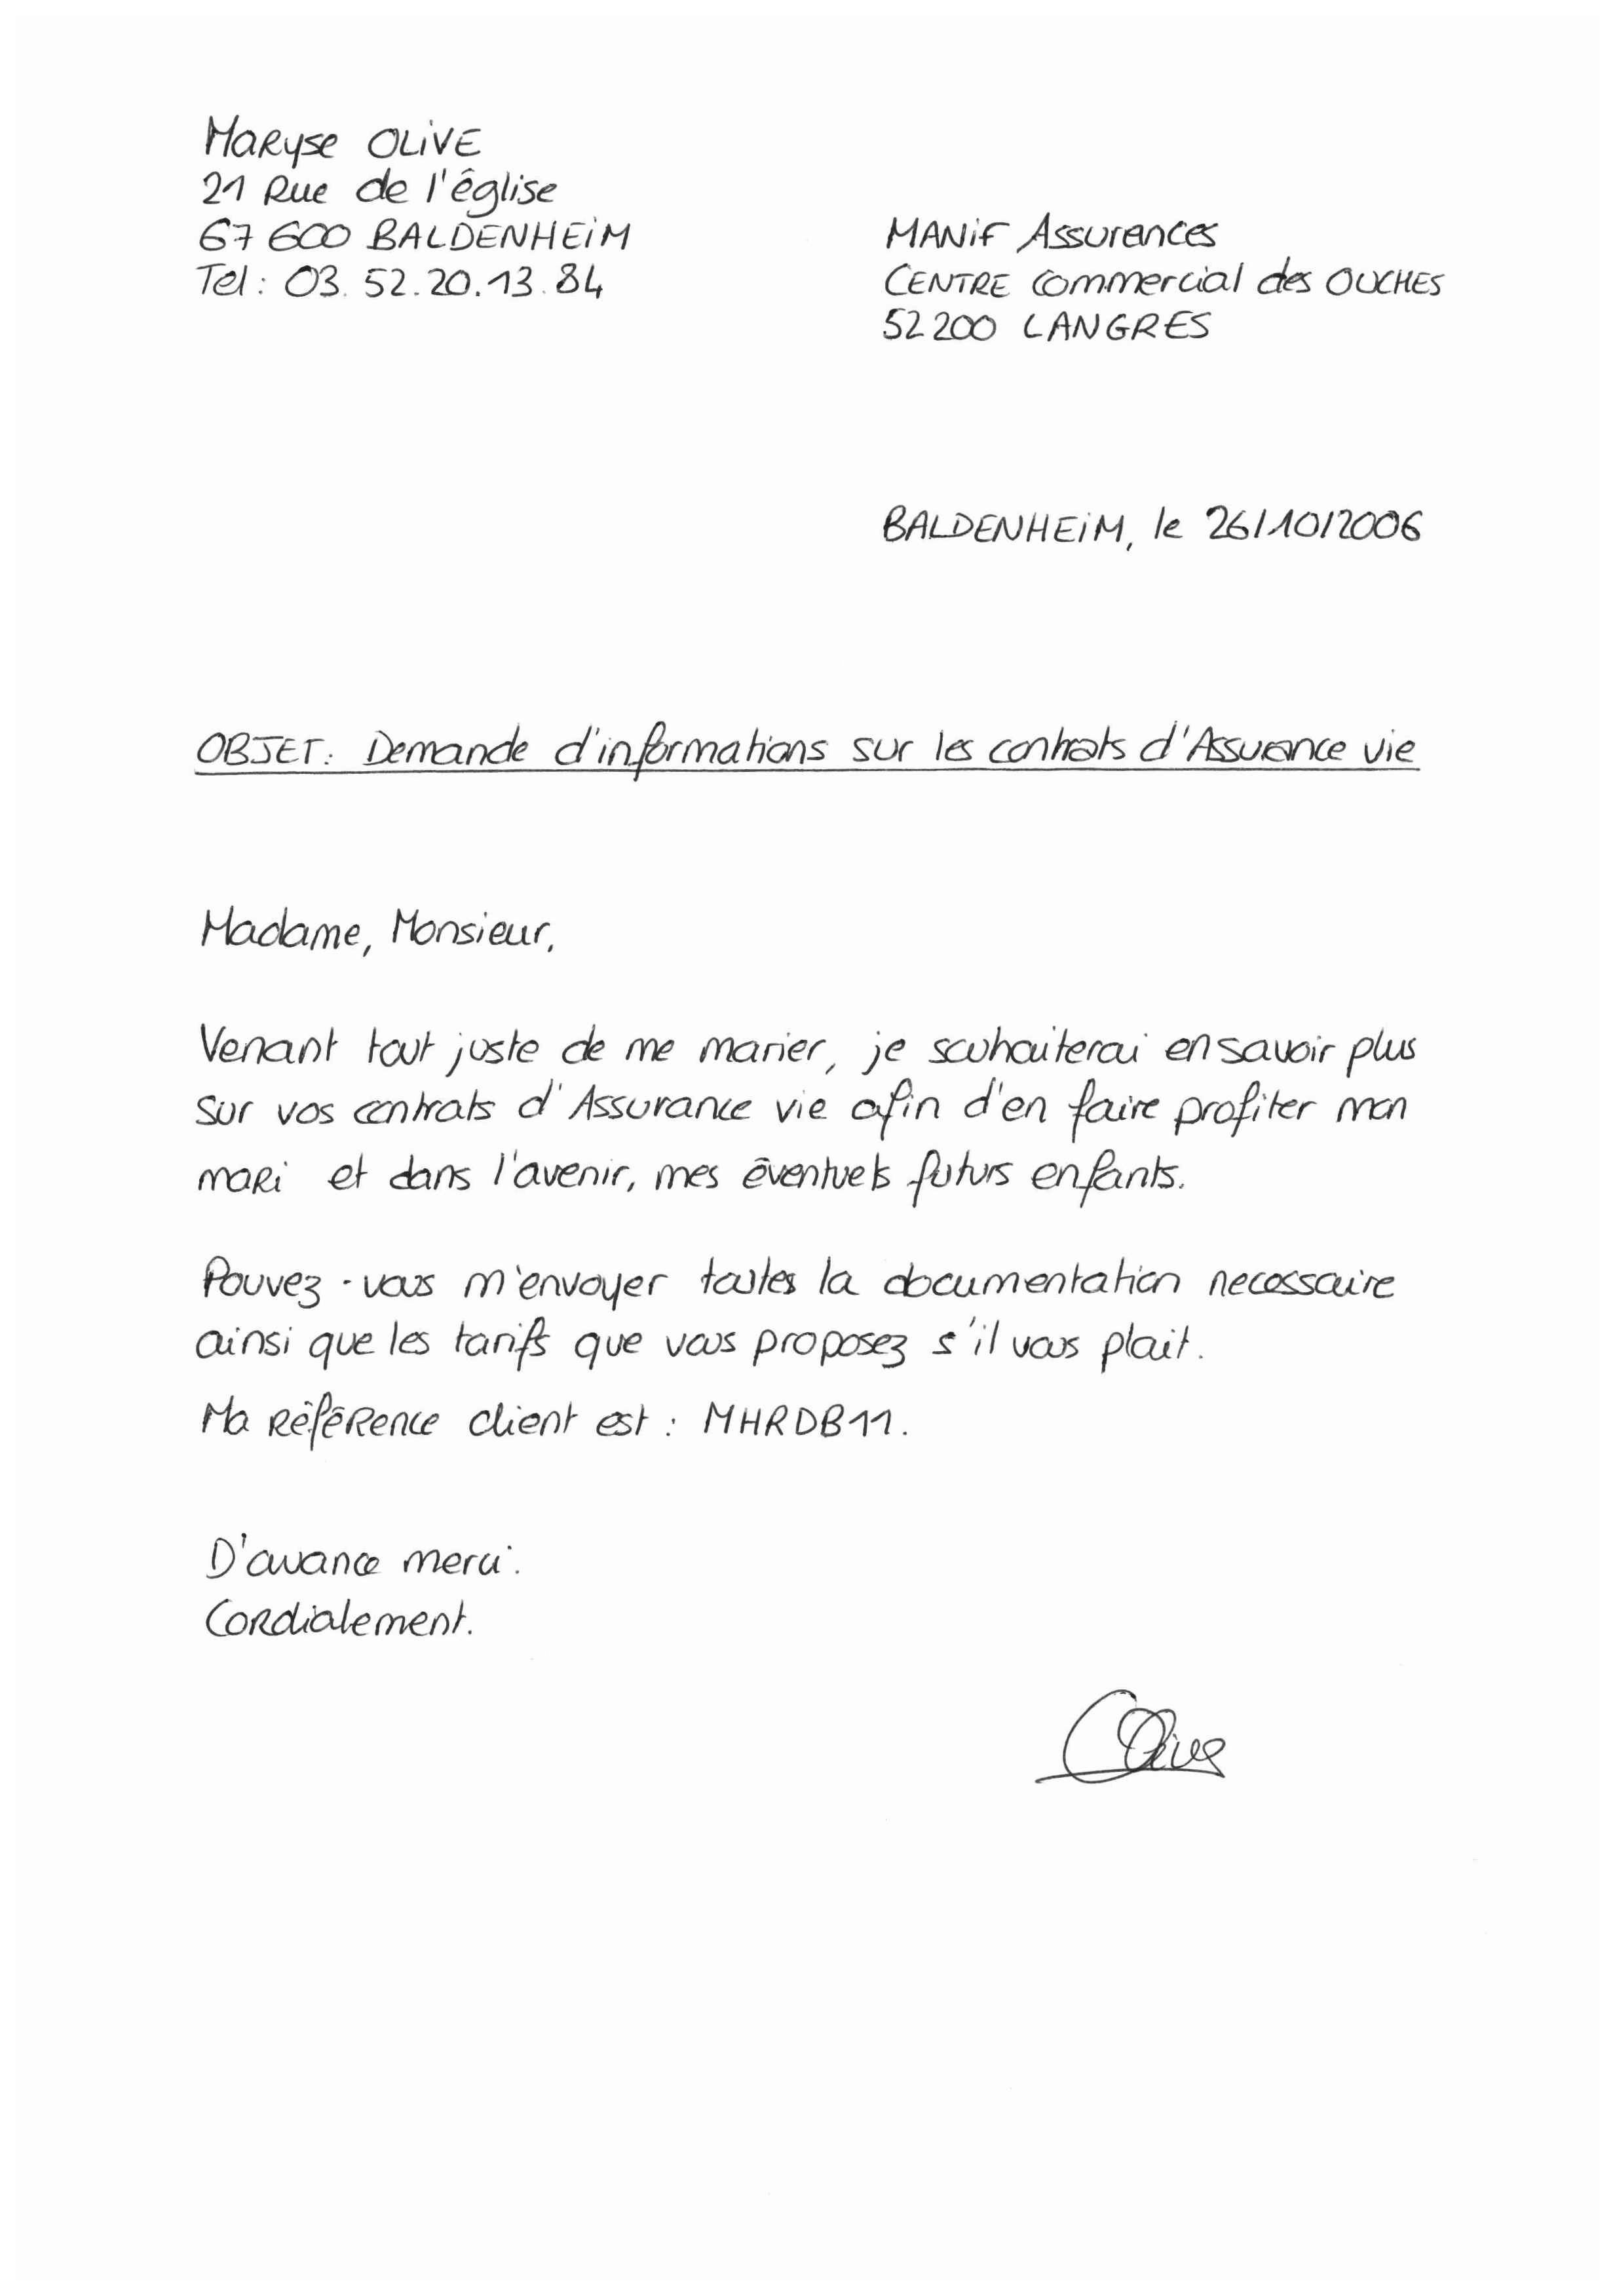 Maryse OLIVE
21 Rue de l'église
67 600 BALDENHEIM
Tel : 03. 52.20.13.84
MANIF Assurances
CENTRE Commercial des OUCHES
52200 LANGRES
BALDENHEIM, le 26/10/2006
OBJET: Demande d'informations sur les contrats d'Assurance vie
Madame, Monsieur,
Venant tout juste de me marier, je souhaiterai en savoir plus
sur vos contrats d'Assurance vie afin d'en faire profiter mon
mari et dans l'avenir, mes éventuels futurs enfants.
Pouvez-vous m'envoyer toutes la documentation necessaire
ainsi que les tarifs que vous proposez s'il vous plait.
Ma référence client est : MHRDB11.
D'avance merci.
Cordialement.
Olive